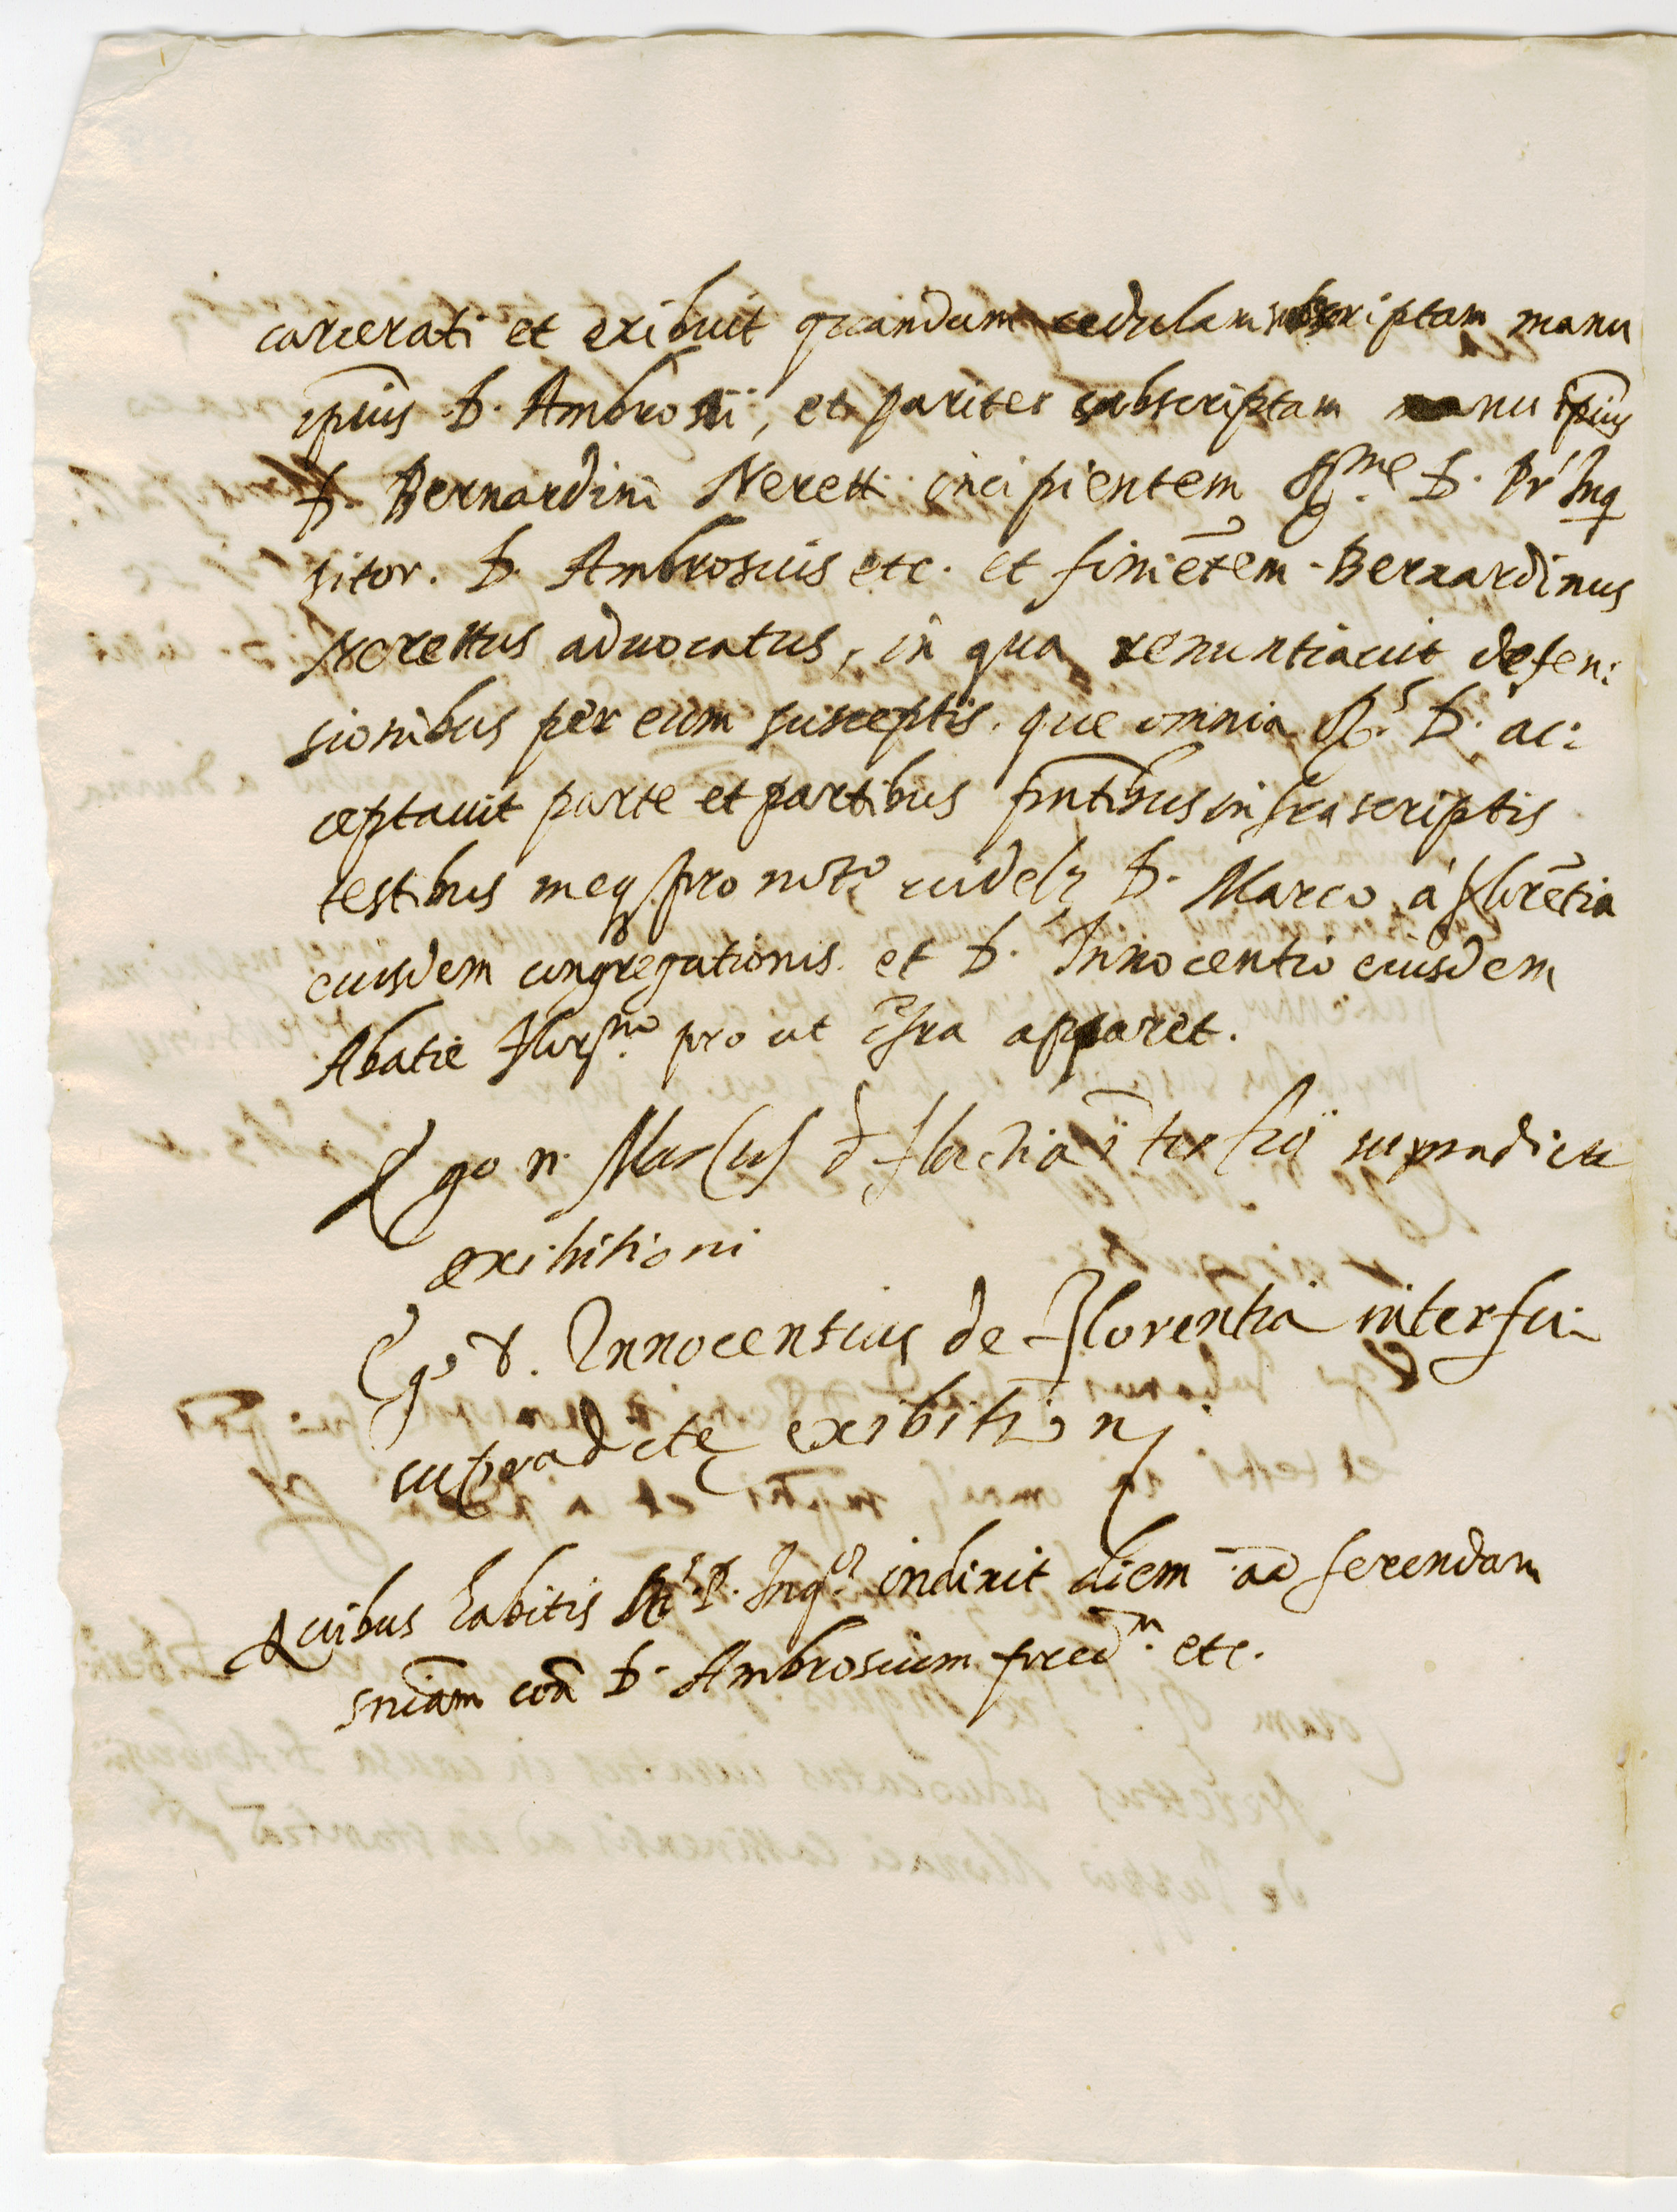 carcerati et exibuit quandam cedulam subscriptam manu
ipius D. Ambrosii, et pariter subscriptam manu ipius
D. Bernardini Neretti incipientem Rme D. Pr Inq
sitor. D. Ambrosius etc. et finiētem Bernardinus
Nerettus aduocatus, in qua renuntiauit defen:
sionibus per eum susceptis. que omnia Rs D. ac:
ceptauit parte et partibus pntibus infrascriptis
testibus meq pro notro uidelz D. Marco á florētia
eiusdem congregationis. et D. Innocentio eiusdem
Abatie pro ut īfra apparet.
Ego n. Marcus d florētia īterfuj supradicte
exibitioni
Ego D. Innocentius de Florentia interfui
supradicte exibitionj
Quibus habitis Rs P. Inqr indixit diem ad ferendam
sniam cōā D. Ambrosium predm. etc.